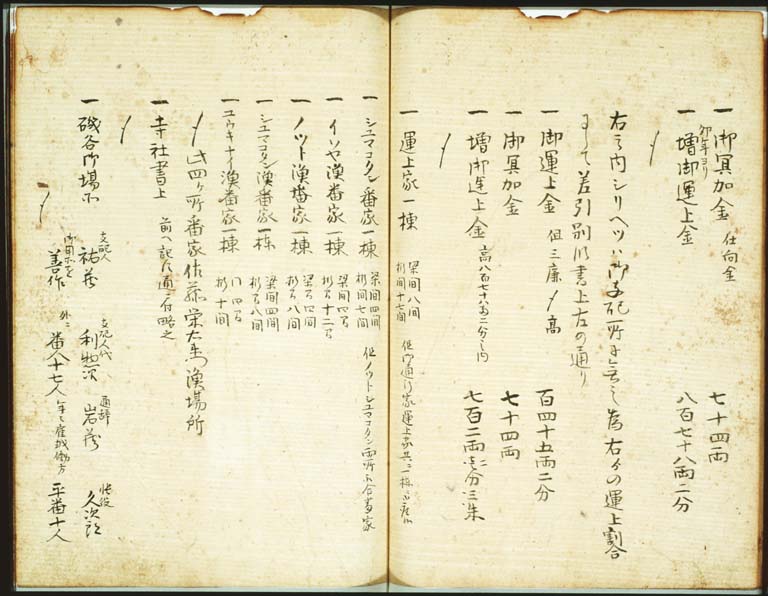 一 御冥加金 仕向金 七十四両
卯年ヨリ
一 増御運上金 八百七十八両二分
〆
右之内シリヘツハ御支配所ニ無之為右ゟの運上割合
にして差引別以書上左の通り
一 御運上金 但三廉〆高 百四十五両二分
一 御冥加金 七十四両
一 増御運上金 高八百七十八両二分之内 七百二両壱分三朱
〆
一 運上家一棟 梁間八間 桁間十七間 但御通行家運上家共ニ一棟ニ御座候
一 シユマコタン番家一棟 梁間四間 桁間七間 但ノツトシユマコタン両所立合番家
一 イソヤ漁番家一棟 梁間四間 桁間十二間
一 ノツト漁番家一棟 梁間四間 桁間八間
一 シユマコタン漁番家一棟 梁間四間 桁間八間
一 ユウキナイ漁番家一棟 同四間 桁十間
〆 此四ヶ所番家佐藤栄右衛馬漁場所
一 寺社書上 前ヘ記ス通ニ付略之
〆
一 磯谷御場所 支配人 祐蔵 支配人代 利惣次 通辞 岩蔵 帳役 久次郎
善作 外ニ 番人十七人 平番十人
〆